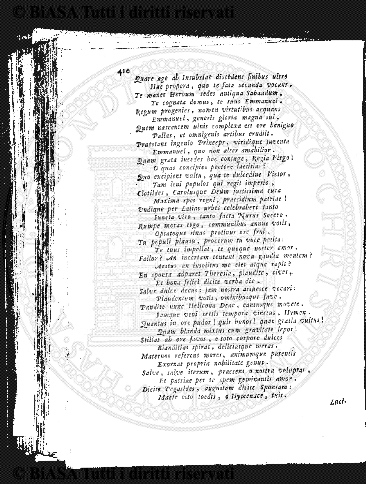 © BiASA Tutti i diritti riservati
410
Quare age ab Insubriæ discedens finibus ultro
Huc propera, quo te fata secunda vocant,
Te manet Heroum sedes antiqua Sabaudum,
Te cognata domus, te suus Emmanuel,
Regum progenies, nomen virtutibus æquans
Emmanuel, generis gloria magna sui,
Quem nascentem ulnis complexa est ore benigno
Pallas, et omnigenis artibus erudiit.
Præstans ingenio Princeps, viridique juventa
Emmanuel, quo non alter amabilior.
Quam grata interea hoc conjuge, Regia Virgo!
O quas concipies pectore lætitias!
Quo excipient vultu, qua te dulcedine Victor,
Tam rui populos qui regit imperio,
Clotildes, Carolusque Deum justissima cura
Maxima spes regni, præsidium patriæ!
Undique per Latias urbes celebrabere tanto
Juncta viro, tanto facta Nurus Socero.
Rumpe moras ergo, communibus annue votis,
Optatosque sinas protinus ore frui.
Tu populi plausu, procerum tu voce petita.
Te tuus impellat, te quoque noster amor.
Fallor? An incertam tentant nova gaudia mentem?
Æstus an insolitus me ciet atque rapit?
En sponsa adparet Theresia, plaudite, cives,
Et bona felici dicite verba die.
Salve dulce decus: jam nostra ardescit vocari:
Plaudentum votis, omnibusque fave.
Pandite nunc Helicona Deæ, cantusque movete.
Jamque veni sertis tempora vinctus, Hymen.
Quantus in ore pudor! quis honor! quæ gratia vultus!
Quam blanda mixtus cum gravitate lepor
Stillat ab ore favus, e toto corpore dulces
Blanditias spirat, deliciasque meras.
Maternos referens mores, animumque parentis
Exornat propria nobilitate genus.
Salve, salve iterum, præsens o nostra voluptas,
Et patriæ per te spem genitoris amor.
Dicite Pegasides, augustam dicite Sponsam:
Macte isto tædis, o Hymenæe, tuis.
Luci-
© BiASA Tutti i diritti riservati